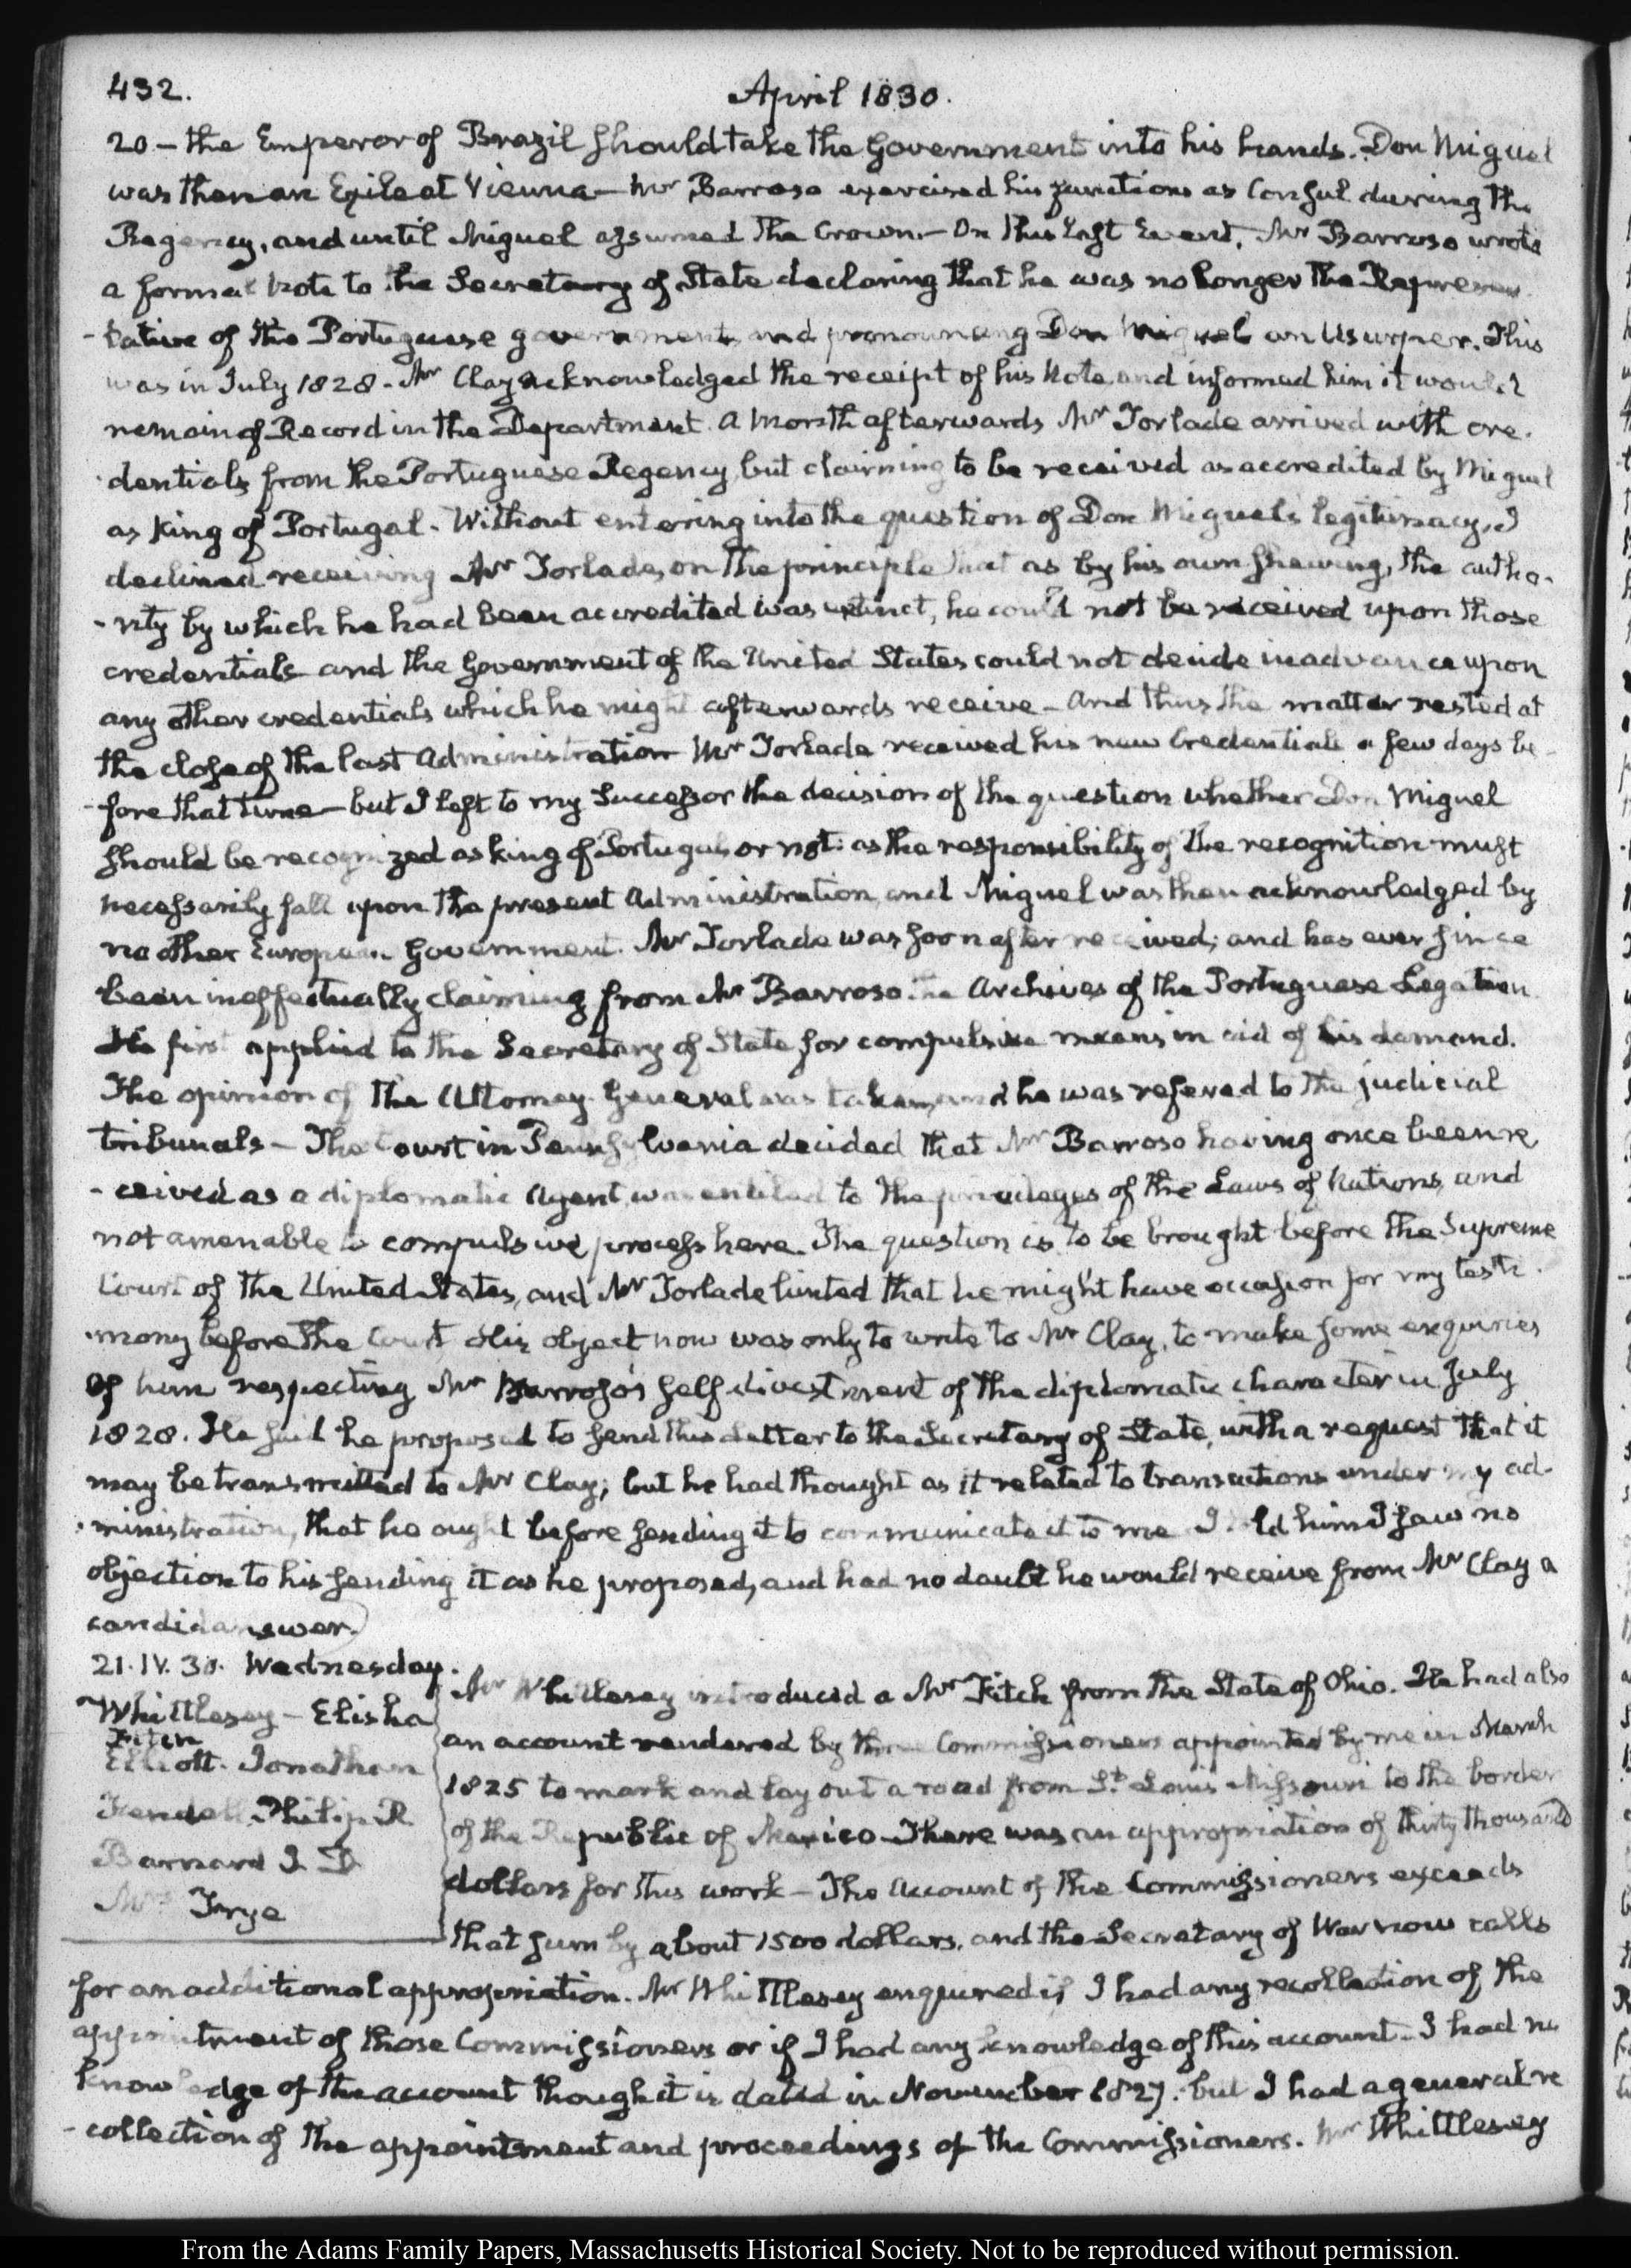 432.
April 1830.
20 – the Emperor of Brazil should take the Government into his hands. Don Miguel
was then an Exile at Vienna – Mr Barroso exercised his functions as Consul during the
Regency, and until Miguel assumed the Crown – On this last Event, Mr Barroso wrote
a formal Note to the Secretary of State declaring that he was no longer the Represen
-tative of the Portuguese government, and pronouncing Don Miguel an Usurper. This
was in July 1828 – Mr Clay acknowledged the receipt of his Note, and informed him it would
remain of Record in the Department. A Month afterwards Mr Torlade arrived with cre-
dentials from the Portuguese Regency, but claiming to be received as accredited by Miguel
as King of Portugal – Without entering into the question of Don Miguel's legitimacy, I
declined receiving Mr Torlade, on the principle that as by his own shewing, the autho-
-rity by which he had been accredited was extinct, he could not be received upon those
credentials and the Government of the United States could not decide in advance upon
any other credentials which he might afterwards receive – And thus the matter rested at
the close of the last Administration Mr Torlade received his new Credentials a few days be
-fore that time – but I left to my Successor the decision of the question whether Don Miguel
should be recognized as king of Portugal, or not: as the responsibility of the recognition must
necessarily fall upon the present Administration, and Miguel was then acknowledged by
no other European Government. Mr Torlade was soon after received; and has ever since
been ineffectually claiming from Mr Barroso the Archives of the Portuguese Legation
He first applied to the Secretary of State for compulsive means in aid of his demand.
The opinion of the Attorney General was taken, and he was refered to the judicial
tribunals – The Court in Pennsylvania decided that Mr Barroso having once been re
-ceived as a diplomatic Agent, was entitled to the privileges of the Laws of Nations, and
not amenable to compulsive process here. The question is to be brought before the Supreme
Court of the United States, and Mr Torlade hinted that he might have occasion for my testi-
-mony before the Court His object now was only to write to Mr Clay, to make some enquiries
of him respecting Mr Barroso's self divestment of the diplomatic character in July
1828. He said he proposed to send this Letter to the Secretary of State, with a request that it
may be transmitted to Mr Clay; but he had thought as it related to transactions under my ad-
-ministration, that he ought before sending it to communicate it to me I told him I saw no
objection to his sending it as he proposed, and had no doubt he would receive from Mr Clay a
candid answer.
21. IV. 30. Wednesday.
Whittlesey – Elisha
Fitch
Elliott. Jonathan
Fendall. Philip R
Barnard I. D
Mrs Frye
Mr Whittlesey introduced a Mr Fitch from the State of Ohio. He had also
an account rendered by three Commissioners appointed by me in March
1825 to mark and lay out a road from St. Louis Missouri to the border
of the Republic of Mexico – There was an appropriation of thirty thousand
dollars for this work – The Account of the Commissioners exceeds
that sum by about 1500 dollars, and the Secretary of War now calls
for an additional appropriation. Mr Whittlesey enquired if I had any recollection of the
appointment of those Commissioners or if I had any knowledge of this account – I had no
knowledge of the account though it is dated in November 1827. but I had a general re
-collection of the appointment and proceedings of the Commissioners. Mr Whittlesey
From the Adams Family Papers, Massachusetts Historical Society. Not to be reproduced without permission.